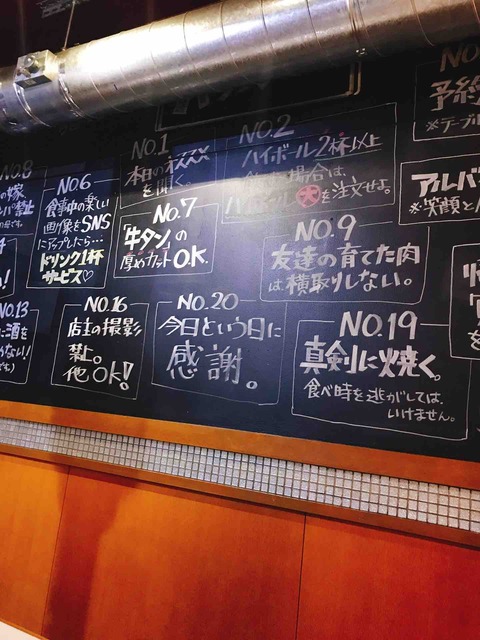 NO.8
の嫁
NO.6
食事中の楽しい
画像をSNS
にアップしたら…
ドリンク1杯
サービス♡
NO.1
本日のオススメ
を聞く。
NO.2
ハイボール2杯以上
場合は、
大を注文せよ。
NO.7
「牛タン」の
厚めカットOK.
NO.9
友達の育てた肉
は、横取りしない。
NO.13
に酒を
NO.16
店主の撮影
禁止。
他OK!
NO.20
今日という日に
感謝。
NO.19
真剣に焼く。
食べ時を逃がしては、
いけません。
NO.
予約
※テーブル
アルバ
※笑顔と